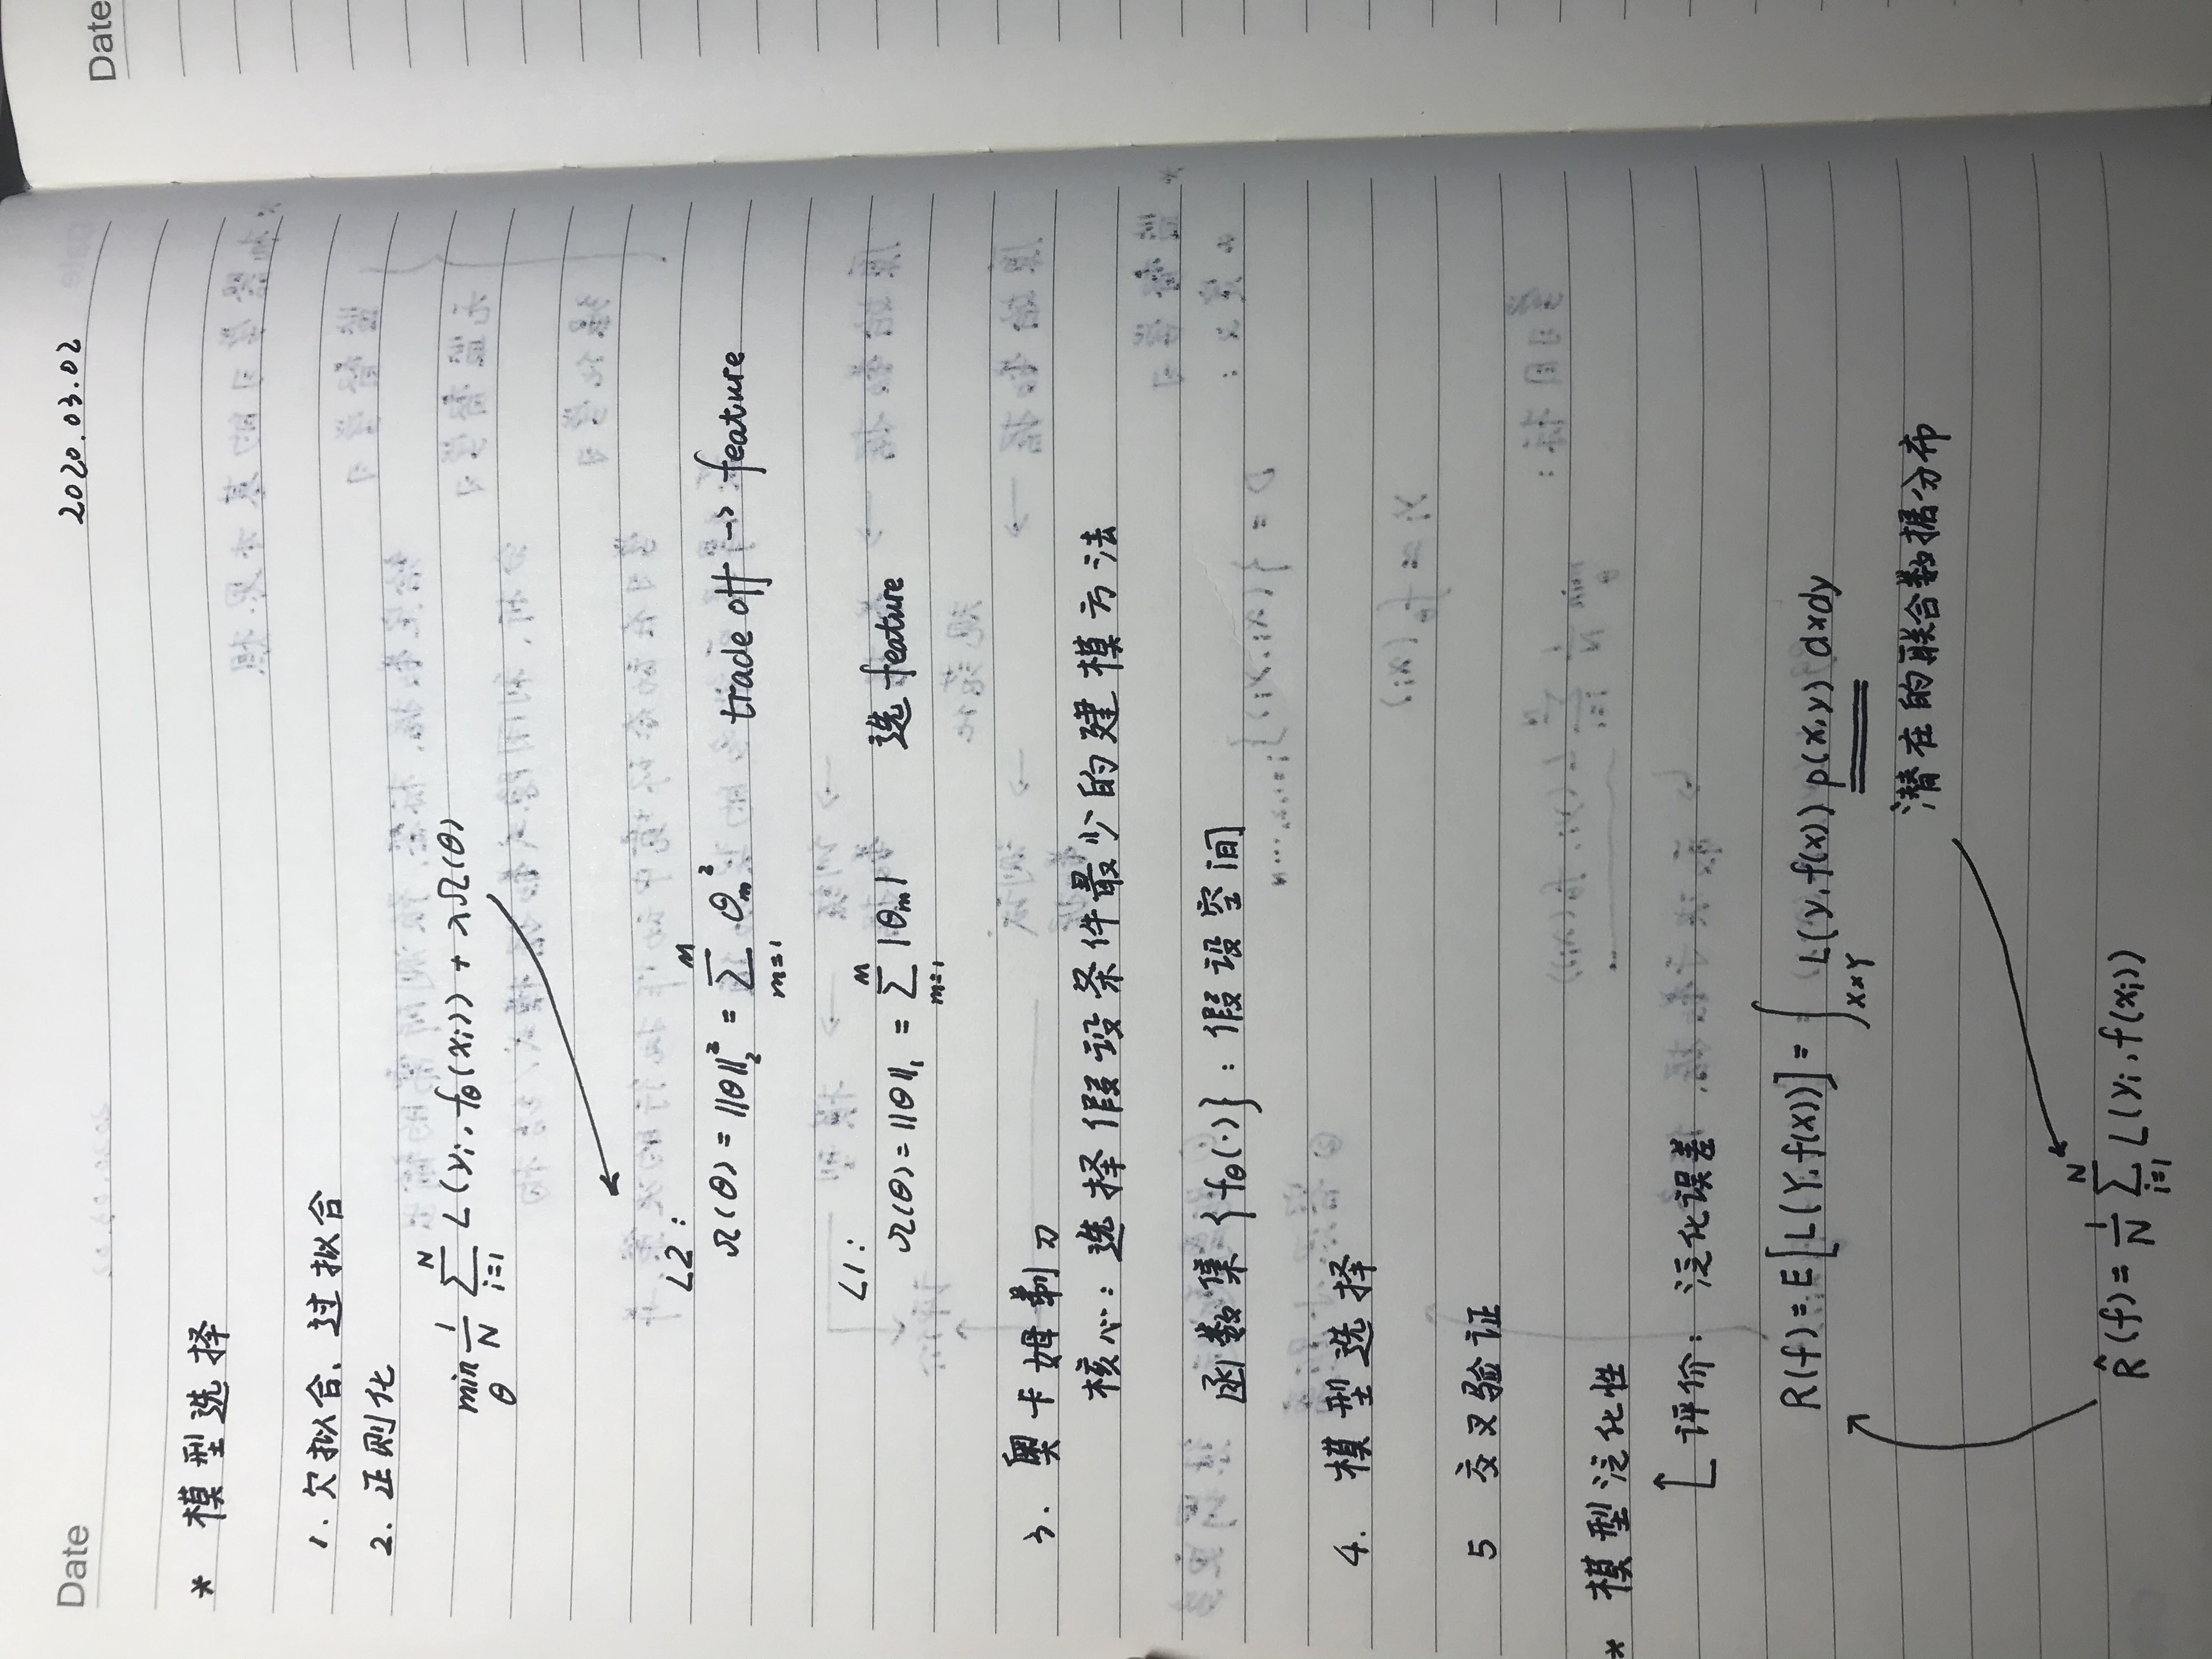 Date 2020.03.02
Date
* 模型选择
1. 欠拟合、过拟合
2. 正则化
min_θ 1/N ∑_{i=1}^{N} L(yi, fθ(xi)) + λΩ(θ)
L2:
Ω(θ) = ||θ||₂² = ∑_{m=1}^{M} θm² trade off → feature
L1:
Ω(θ) = ||θ||₁ = ∑_{m=1}^{M} |θm| 选 feature
3. 奥卡姆剃刀
核心: 选择假设条件最少的建模方法
函数集 {fθ(·)} : 假设空间
4. 模型选择
5 交叉验证
* 模型泛化性
评价: 泛化误差
R(f) = E[L(Y, f(X))] = ∫_{X×Y} L(y, f(x)) p(x, y) dxdy
潜在的联合数据分布
R̂(f) = 1/N ∑_{i=1}^{N} L(yi, f(xi))